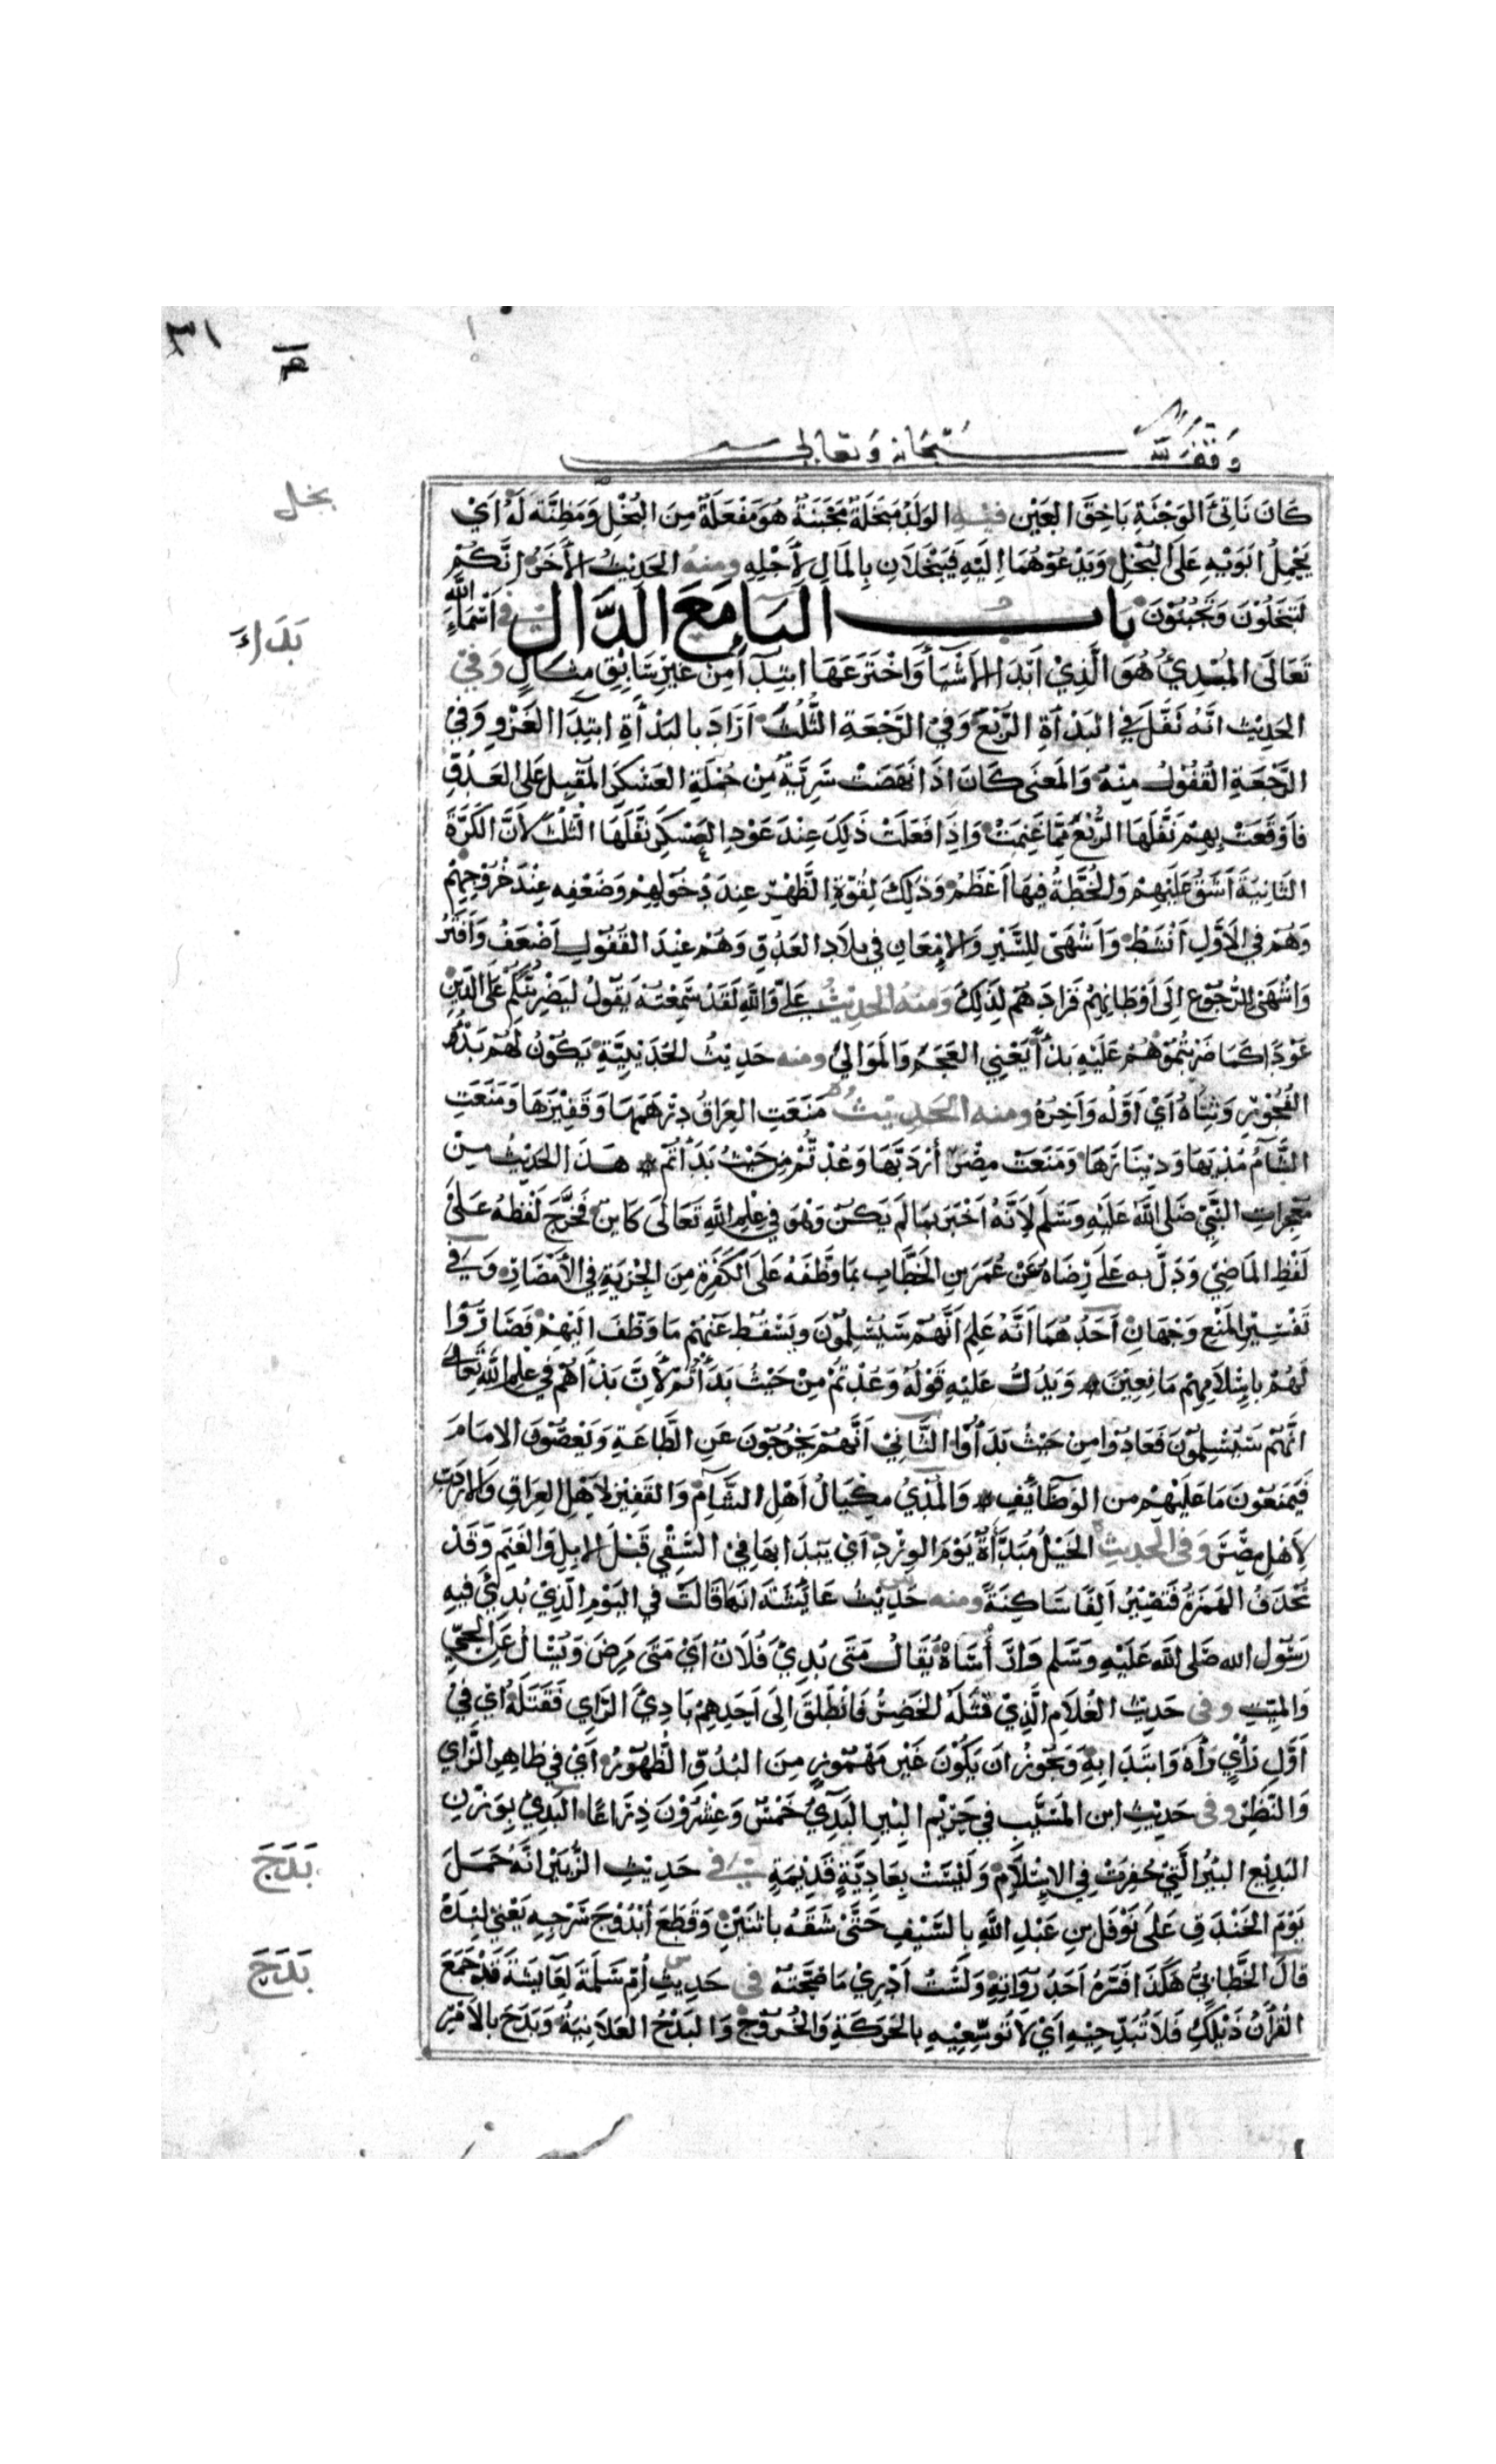 ٣١
وقف لله سبحانه وتعالى
كَانَ نَاتِئَ الوَجْنَةِ بَاخِقَ العَيْن فيهِ الوَلَدُ مَبْخَلَةٌ مَجْبَنَةٌ هُوَ مَفْعَلَةٌ مِنَ البُخْلِ وَمَظِنَّة لَهُ أَيْ
بخل
يَحْمِلُ أَبَوَيْهِ عَلَى البُخْلِ وَيَدْعُوهُمَا إِلَيْهِ فَيَبْخَلَانِ بِالمَالِ لِأَجْلِهِ ومنهُ الحَدِيْثُ الأَخَرُ إِنَّكُمْ
لَتُبَخِّلُوْنَ وَتُجَبِّنُوْنَ بَاب البَاءِ مَعَ الدَّالِ في أَسْمَاءِ اللّٰه
بَدَاءَ
تَعَالَى المُبْدِئُ هُوَ الَّذِيْ أَبْدَأَ الأَشْيَاَ وَاخْتَرَعَهَا ابْتِدَآءً مِنْ غَيْرِ سَابِقِ مِثَالٍ وَفِيْ
الحَدِيْثِ أَنَّهُ نَفَّلَ فِي البَدْأَةِ الرُّبُعَ وَفِيْ الرَّجْعَةِ الثُّلُثَ أَرَادَ بالبَدْأَةِ ابتِدَاَ الغَزْوِ وَفِيْ
الرَّجْعَةِ القُفُوْلَ مِنْهُ وَالمَعنَى كَانَ إِذَا نَهَضَتْ سَرِيَّةٌ مِنْ جُمْلَةِ العَسْكَرِ المُقْبِلِ عَلَى العَدُوِّ
فَأَوْقَعَتْ بِهِمْ نَفَّلَهَا الرُّبُعَ مِمَّا غَنِمَتْ وَإِذَا فَعَلَتْ ذَلِكَ عِنْدَ عَوْدِ العَسْكَرِ نَفَّلَهَا الثُّلُثَ لأَنَّ الكَرَّةَ
الثَّانِيَةَ أَشَقُّ عَلَيْهِمْ وَالخُطَّةُ فِيهَا أَعْظَمُ وَذَلِكَ لِقُوَّةِ الظَّهْرِ عِندَ دُخُوْلِهِمْ وَضَعْفِهِ عِنْدَ خُرُوْجِهِمْ
وَهُمْ فِي الأَوَّلِ أَنْشَطُ وَأَشْهَى لِلسَّيْرِ وَالإِمْعَانِ فِي بِلَادِ العَدُوِّ وَهُمْ عِنْدَ القُفُوْلِ أَضْعَفُ وَأَفْتَرُ
وَأَشْهَى لِلرُّجُوْعِ إِلَى أَوْطَانِهِمْ فَزَادَهُمْ لِذَلِكَ وَمنهُ الحَدِيْثُ عَلِيٍّ وَاللَّهِ لَقَدْ سَمِعْتُهُ يَقُوْلُ لَيَضْرِبُنَّكُمْ عَلَى الدِّيْنِ
عَوْدًا كَمَا ضَرَبْتُمُوْهُمْ عَلَيْهِ بَدْأً يَعْنِي العَجَمَ وَالمَوَالِيَ ومنه حَدِيْثُ الحُدَيْبِيَّةِ يَكُوْنُ لَهُمْ بَدْءُ
الفُجُوْرِ وَثِنَاهُ أَيْ أَوَّلُه وَآخِرُهُ ومنه الحَدِيْثُ مَنَعَتِ العِرَاقُ دِرْهَمَهَا وَقَفِيْزَهَا وَمَنَعَتِ
الشَّامُ مُدْيَهَا وَدِيْنَارَهَا وَمَنَعَتْ مِصْرُ أَرْدَبَّهَا وَعُدْتُمْ مِنْ حَيْثُ بَدَأْتُمْ هَذَا الحَدِيْثُ مِنْ
مُعْجِزَاتِ النَّبِيِّ صَلَى اللَّهُ عَلَيْهِ وَسَلَّمَ لأَنَّهُ أَخْبَرَ بِمَا لَم يَكُنْ وَهُوَ فِي عِلْمِ اللَّهِ تَعَالَى كَايِنٌ فَخَرَجَ لَفْظُهُ عَلَى
لَفْظِ المَاضِي وَدَلَّ به عَلَى رِضَاهُ عَنْ عُمَرَ بنِ الخَطَّابِ بمَا وَظَّفَهُ عَلَى الكَفَرَةِ مِنَ الجِزْيَةِ فِي الأَمْصَارِ وَفي
تَفْسِيْرِ المَنْعِ وَجْهَانِ أَحَدُهُمَا أَنَّهُ عَلِمَ أَنَّهُمْ سَيُسْلِمُوْنَ وَيَسْقُطُ عَنْهُمْ مَا وَظَّفَ عَلَيْهِمْ فَصَارُوْا
لَهُمْ بِإِسْلَامِهِمْ مَانِعِيْنَ وَيَدُلُّ عَلَيْهِ قَوْلُهُ وَعُدْتُمْ مِنْ حَيْثُ بَدَأْتُمْ لأَنَّ بَدْأَهُمْ فِي عِلْمِ اللهِ تَعَالَى
أَنَّهُمْ سَيُسْلِمُوْنَ فَعَادُوْا مِن حَيْثُ بَدَأُوْا الثَّانِيْ أَنَّهُمْ يَخْرُجُوْنَ عَنِ الطَّاعَةِ وَيَعْصُوْنَ الامَامَ
فَيَمْنَعُوْنَ مَا عَلَيْهِمْ من الوَظَائِفِ وَالمُدْيُ مِكْيَالُ أَهْلِ الشَّامِ وَالقَفِيْزُ لِأَهْلِ العِرَاقِ وَالإِرْدَبُّ
لأَهْلِ مِصْرَ وَفِي الحَدِيْثِ الخَيْلُ مُبَدَّأَةٌ يَوْمَ الوِرْدِ أَيْ يُبْدَأُ بهَا فِيْ السَّقْيِ قَبْلَ الإِبِلِ وَالغَنَمِ وَقَدْ
تُحْذَفُ الهَمْزَةُ فَتَصِيْرُ أَلِفًا سَاكِنَةً ومنه حَدِيْثُ عَايِشَةَ أَنَّهَا قَالَتْ فِي اليَوْمِ الَّذِيْ بُدِئَ فِيهِ
رَسُوْلُ الله صَلَى اللهُ عَلَيْهِ وَسَلَّم وَارَأْسَاهْ يُقَالُ مَتَى بُدِئَ فُلَانٌ أَيْ مَتَى مَرِضَ وَيُسْأَلُ عَنِ الحَيِّ
وَالمَيِّتِ وفي حَدِيْثِ الغُلَامِ الَّذِيْ قَتَلَهُ الخَضِرُ فَانْطَلَقَ إِلَى أَحَدِهِمْ بَادِئَ الرَّأيِ فَقَتَلَهُ أَيْ فِيْ
أَوَّلِ رَأْيٍ رَأَهُ وَابتَدَأَ بِهِ وَيَجُوْزُ أَن يَكُوْنَ غَيْرَ مَهْمُوْزٍ مِنَ البُدُوِّ الظُّهُوْرِ أَيْ فِي ظَاهِرِ الرَّأيِ
وَالنَّظَرِ وفي حَدِيْثِ ابن المُسَيَّبِ فِي حَرِيْمِ البِئْرِ البَدِئُ خَمْسٌ وَعِشْرُوْنَ ذِرَاعًا البَدِئُ بِوَزْنِ
البَدِيْعِ البِيْرُ الَّتِيْ حُفِرَتْ فِي الإِسْلَامِ وَلَيْسَتْ بِعَادِيَّةٍ قَدِيْمَةٍ في حَدِيْثِ الزُّبَيْرِ أَنَّهُ حَمَلَ
بَدَجَ
يَوْمَ الخَنْدَقِ عَلَى نَوْفَلِ بنِ عَبْدِ اللَّهِ بِالسَّيْفِ حَتَّى شَقَّهُ باثنَيْنِ وَقَطَعَ أُبْدُوْجَ سَرْجِهِ يَعْنِي لِبْدَهُ
قَالَ الخَطَّابِيُّ هَكَذَا فَسَّرَهُ أَحَدُ رُوَاتِهِ وَلَسْتُ أَدْرِيْ مَا صِحَّتُهُ في حَدِيْثِ أُمِّ سَلَمَةَ لِعَايِشَةَ قَدْ جَمَعَ
بَدَحَ
القُرْآنُ ذَيْلَكِ فَلَا تُبَدِّحِيْهِ أَيْ لَا تُوَسِّعِيْهِ بِالحَرَكَةِ وَالخُرُوْجِ وَالبَدْحُ العَلَانِيَةُ وَبَدَحَ بِالأَمْرِ